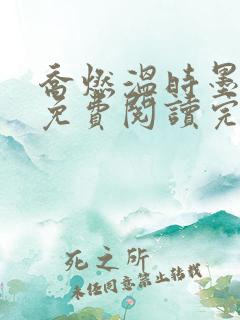 喬燃溫時墨
免費閱讀完
死之所
未经同意禁止转载